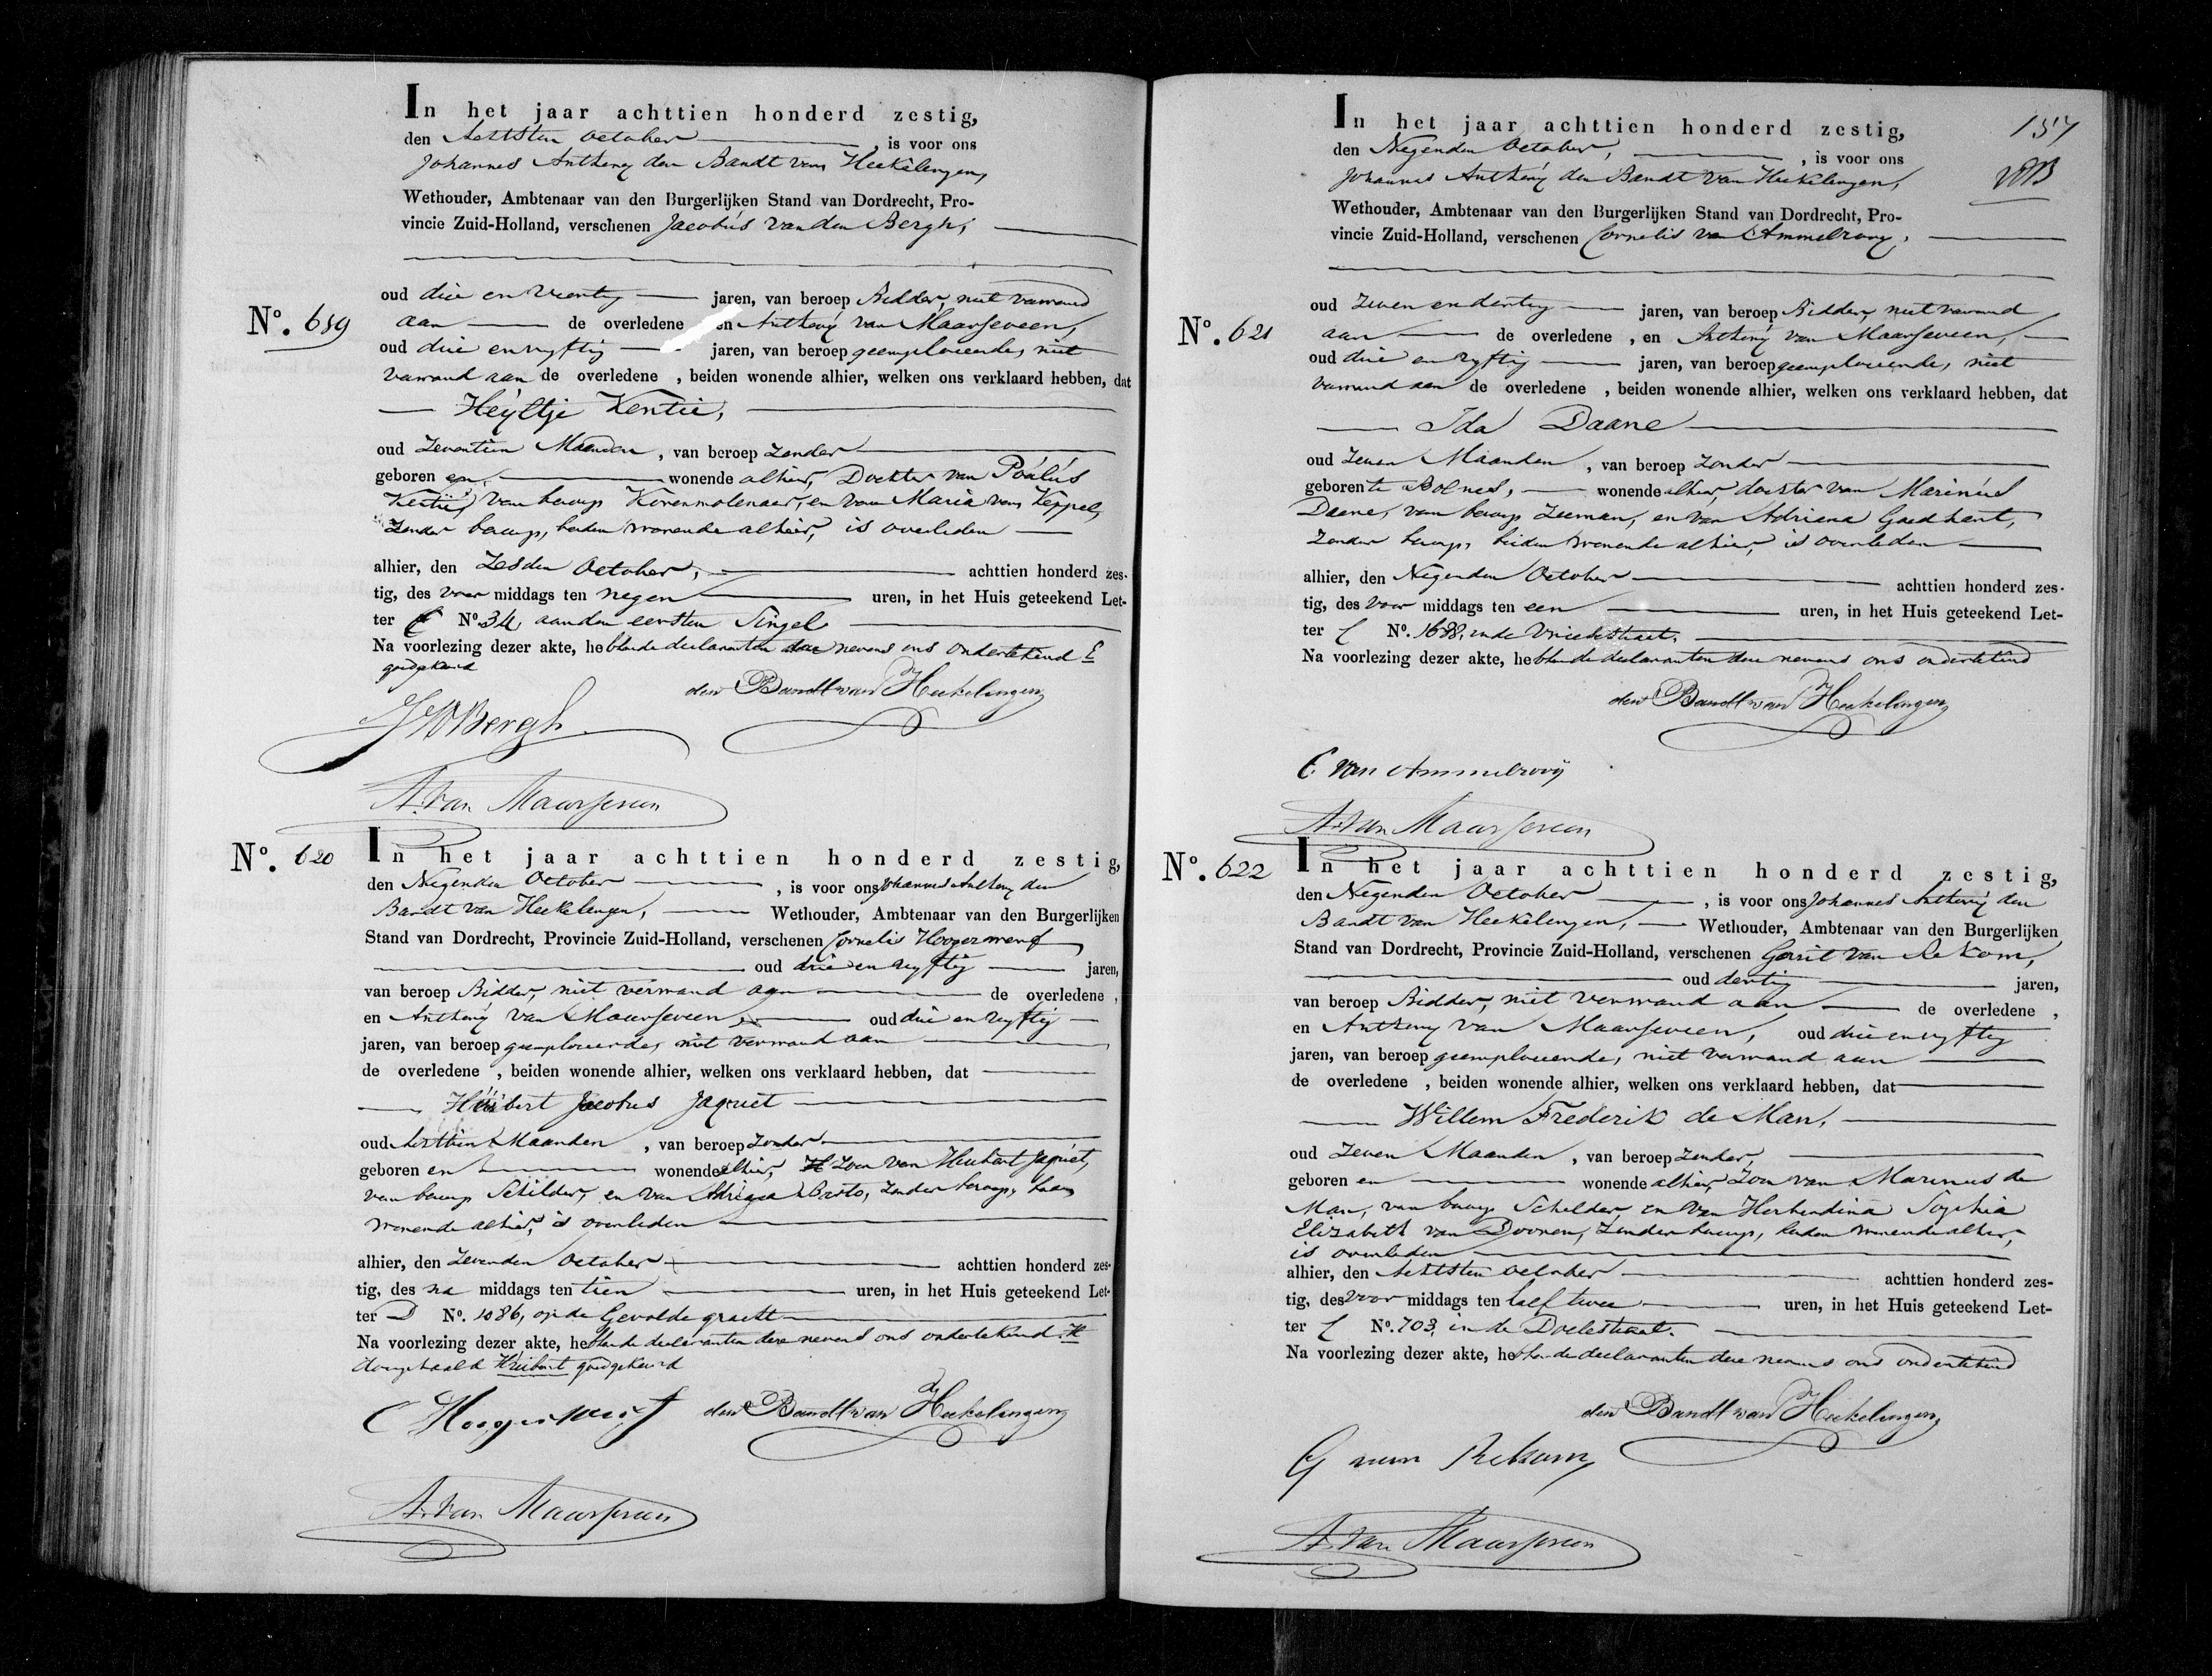 In het jaar achttien honderd zestig,
den Achtsten October, is voor ons
Johannes Anthony den Bandt van Heekelingen,
Wethouder, Ambtenaar van den Burgerlijken Stand van Dordrecht, Pro-
vincie Zuid-Holland, verschenen Jacobus van den Bergh,
oud drie en veertig jaren, van beroep Bidder, niet verwand
No. 619
aan de overledene en Anthony van Maarseveen,
oud drie en vyftig jaren, van beroep geemploieerde, niet
verwand aan de overledene, beiden wonende alhier, welken ons verklaard hebben, dat
Heyltje Kentie,
oud Zeventien Maanden, van beroep Zonder
geboren en wonende alhier, Dochter van Paulus
Kentie, van beroep Korenmolenaar, en van Maria van Keppel,
Zonder beroep, beiden wonende alhier, is overleden
alhier, den Zesden October, achttien honderd zes-
tig, des voor middags ten negen uren, in het Huis geteekend Let-
ter No. 34 aan den eersten Singel
Na voorlezing dezer akte, hebbende declaranten deze nevens ons onderteekend E
goedgekeurd
den Bandt van Heekelingen
JVDBergh
A. van Maarseveen
No. 620
In het jaar achttien honderd zestig,
den Negenden October, is voor ons Johannes Anthony den
Bandt van Heekelingen, Wethouder, Ambtenaar van den Burgerlijken
Stand van Dordrecht, Provincie Zuid-Holland, verschenen Cornelis Hoogerwerf
oud drie en vyftig jaren,
van beroep Bidder, niet verwand aan de overledene,
en Anthony van Maarseveen, oud drie en vyftig
jaren, van beroep geemploieerde, niet verwand aan
de overledene, beiden wonende alhier, welken ons verklaard hebben, dat
Huibert Jacobus Jaquet
oud Achttien Maanden, van beroep Zonder
geboren en wonende alhier, Zoon van Huibert Jaquet,
van beroep Schilder, en van Adriana Barto, Zonder beroep, beiden
wonende alhier, is overleden
alhier, den Zevenden October achttien honderd zes-
tig, des na middags ten tien uren, in het Huis geteekend Let-
ter D No. 1086, op de Gevolde gracht
Na voorlezing dezer akte, hebbende declaranten deze nevens ons onderteekend. H
doorgehaald Huibert goedgekeurd
C Hoogerwerf
den Bandt van Heekelingen
A. van Maarseveen
157
In het jaar achttien honderd zestig,
den Negenden October, is voor ons
Johannes Anthony den Bandt van Heekelingen,
Wethouder, Ambtenaar van den Burgerlijken Stand van Dordrecht, Pro-
vincie Zuid-Holland, verschenen Cornelis van Ammelrooy,
oud Zeven en dertig jaren, van beroep Bidder, niet verwand
No. 621
aan de overledene, en Anthony van Maarseveen,
oud drie en vyftig jaren, van beroep geemploieerde, niet
verwand aan de overledene, beiden wonende alhier, welken ons verklaard hebben, dat
Ida Daane
oud Zeven Maanden, van beroep Zonder
geboren te Bolnes, wonende alhier, dochter van Marinus
Daane, van beroep Zeeman, en van Adriana Goedhart,
Zonder beroep, beiden wonende alhier, is overleden
alhier, den Negenden October achttien honderd zes-
tig, des voor middags ten een uren, in het Huis geteekend Let-
ter C No. 1688, in de Vriesestraat.
Na voorlezing dezer akte, hebbende declaranten deze nevens ons onderteekend
den Bandt van Heekelingen
C. van Ammelrooij
A. van Maarseveen
No. 622
In het jaar achttien honderd zestig,
den Negenden October, is voor ons Johannes Anthony den
Bandt van Heekelingen, Wethouder, Ambtenaar van den Burgerlijken
Stand van Dordrecht, Provincie Zuid-Holland, verschenen Gerrit van Rekom,
oud dertig jaren,
van beroep Bidder, niet verwand aan de overledene,
en Anthony van Maarseveen, oud drie en vyftig
jaren, van beroep geemploieerde, niet verwand aan
de overledene, beiden wonende alhier, welken ons verklaard hebben, dat
Willem Frederik de Man,
oud Zeven Maanden, van beroep Zonder,
geboren en wonende alhier, Zoon van Marinus de
Man, van beroep Schilder, en van Herbendina Sophia
Elizabeth van Dooren, Zonder beroep, beiden wonende alhier,
is overleden
alhier, den Achtsten October achttien honderd zes-
tig, des voor middags ten half twee uren, in het Huis geteekend Let-
ter C No. 703, in de Doelestraat.
Na voorlezing dezer akte, hebbende declaranten deze nevens ons onderteekend
den Bandt van Heekelingen
G van Rekum
A. van Maarseveen